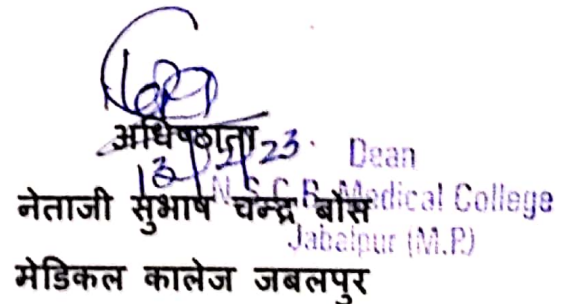 अधिष्ठाता
Dean
N.S.C.B. Medical College
Jabalpur (M.P.)
नेताजी सुभाष चन्द्र बोस
मेडिकल कालेज जबलपुर